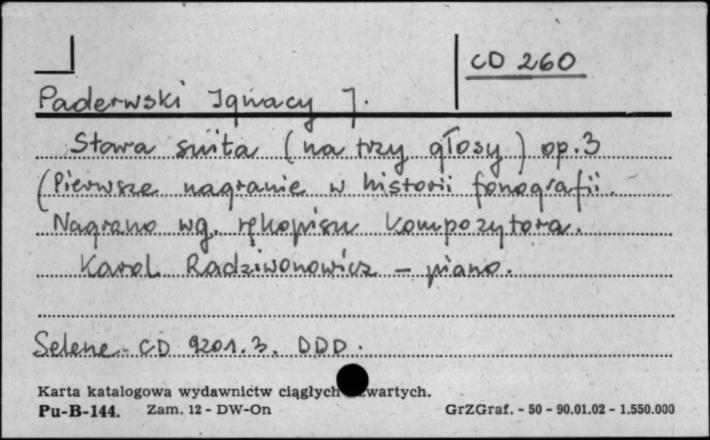 CD 260
Paderwski Ignacy J.
Stara suita (na trzy głosy) op. 3
(Pierwsze nagranie w historii fonografii.
Nagrano wg. rękopisu kompozytora.
Karol Radziwonowicz – piano.
Selene – CD 9201.3. DDD.
Karta katalogowa wydawnictw ciągłych wartych.
Pu-B-144. Zam. 12 - DW-On GrZGraf. - 50 - 90.01.02 - 1.550.000